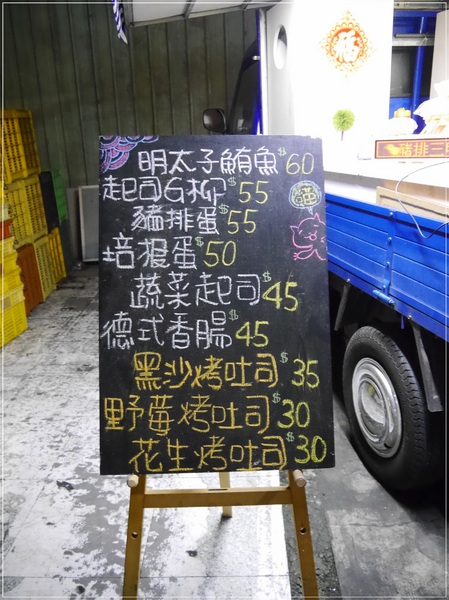 明太子鮪魚$60
起司G柳$55
豬排蛋$55
培根蛋$50
蔬菜起司$45
德式香腸$45
黑沙烤吐司$35
野莓烤吐司$30
花生烤吐司$30
福
豬排三